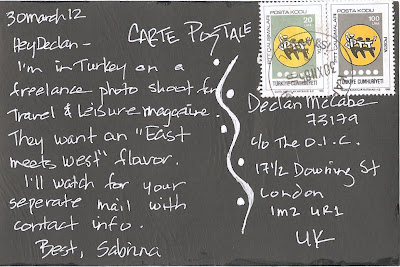 30 march 12
CARTE POSTALE
Hey Declan -
I'm in Turkey on a
freelance photo shoot for
Travel & Leisure magazine.
They want an "East
meets west" flavor.
I'll watch for your
seperate mail with
contact info.
Best, Sabrina
POSTA KODU
20
LİRA
TÜRKİYE CUMHURİYETİ
POSTA KODU
100
LİRA
TÜRKİYE CUMHURİYETİ
Declan McCabe
73179
c/o The D.I.C.
17 1/2 Downing St
London
1M2 UR1
UK